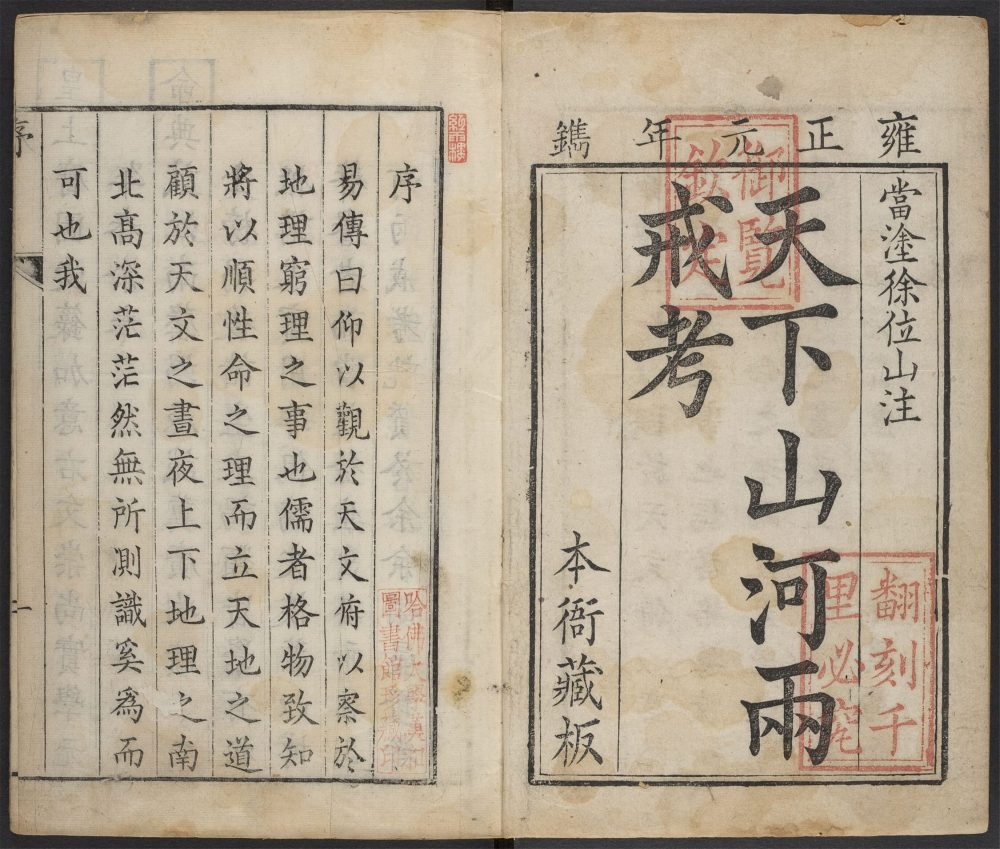 雍正元年鐫
當塗徐位山注
天下山河兩
戒考
本衙藏板
御覽
欽定
翻刻千
里必究
序
易傳曰仰以觀於天文府以察於
地理窮理之事也儒者格物致知
將以順性命之理而立天地之道
顧於天文之晝夜上下地理之南
北髙深茫茫然無所測識奚爲而
可也我
序
一
哈佛大學漢和
圖書館珍藏印